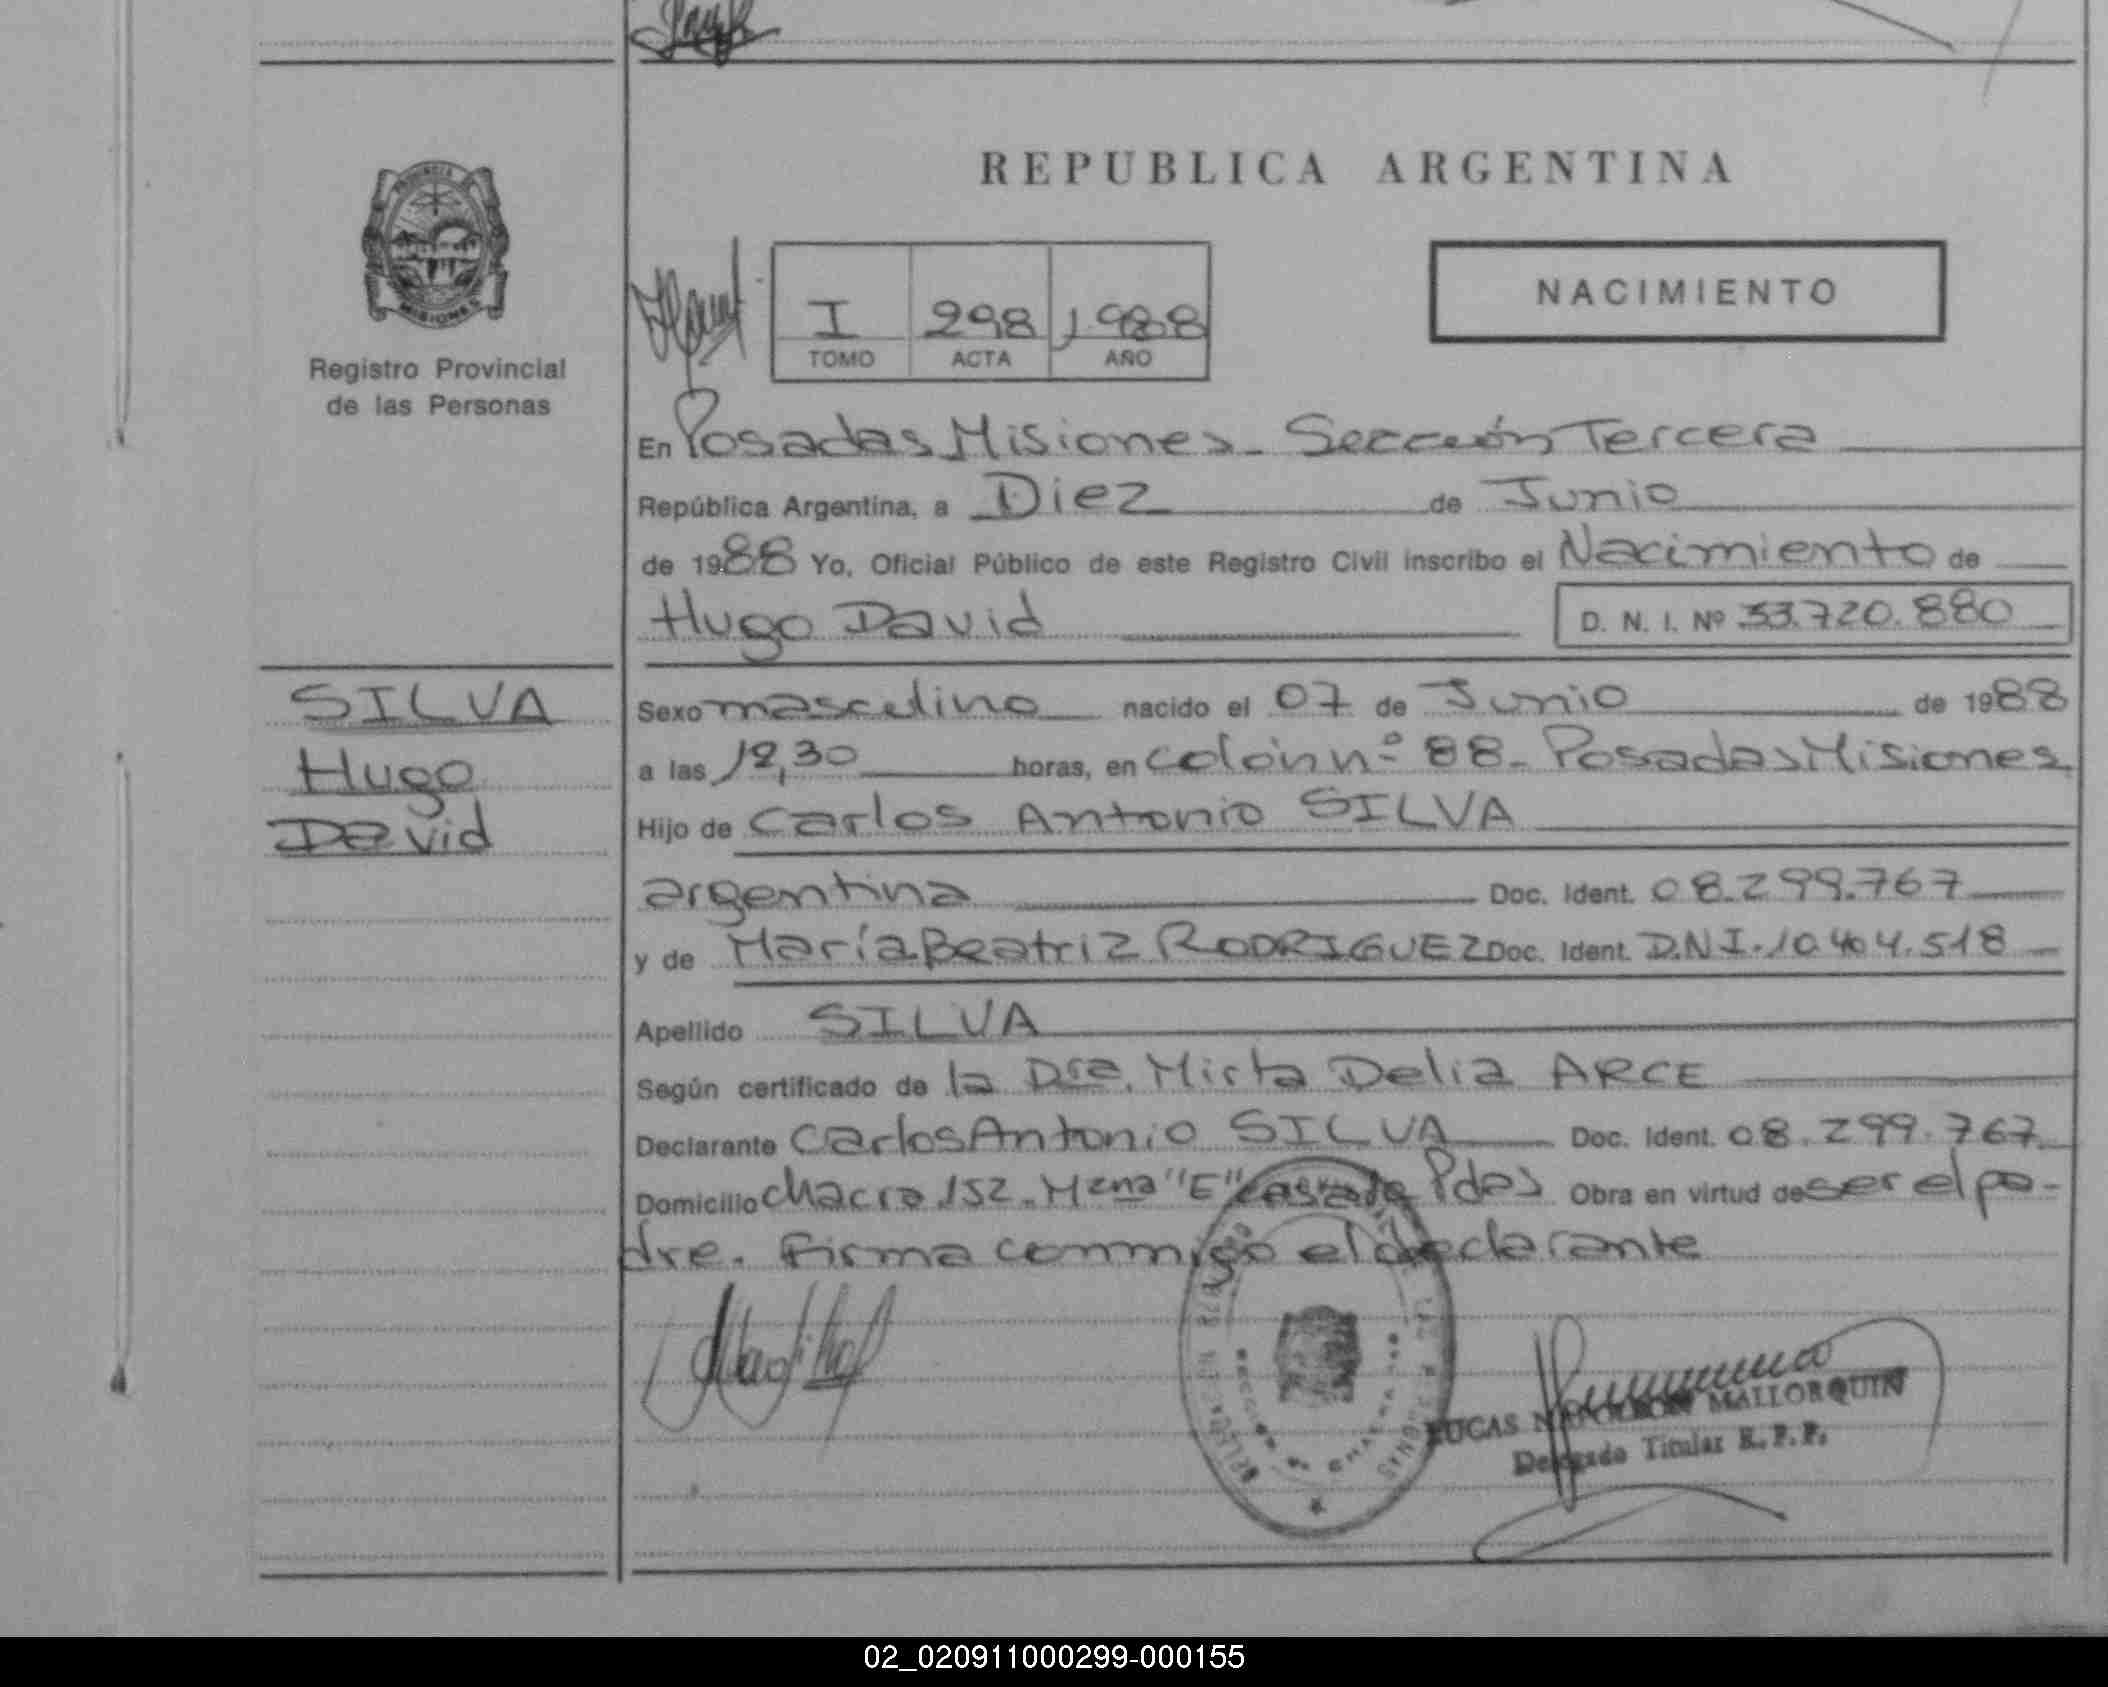 REPUBLICA ARGENTINA
PROVINCIA DE
MISIONES
Registro Provincial
de las Personas
I 298 1988
TOMO ACTA AÑO
NACIMIENTO
En Posadas Misiones - Sección Tercera
República Argentina, a Diez de Junio
de 1988 Yo, Oficial Público de este Registro Civil inscribo el Nacimiento de
Hugo David D. N. I. Nº 33.720.880
SILVA
Hugo
David
Sexo masculino nacido el 07 de Junio de 1988
a las 12,30 horas, en colón nº 88 - Posadas Misiones
Hijo de Carlos Antonio SILVA
argentina Doc. Ident. 08.299.767
y de María Beatriz RODRIGUEZ Doc. Ident. D.N.I. 10.404.518
Apellido SILVA
Según certificado de la Dra. Mirta Delia ARCE
Declarante Carlos Antonio SILVA Doc. Ident. 08.299.767
Domicilio Chacra 152 - Mzna "E" Pdas Obra en virtud de ser el pa-
dre. Firma conmigo el declarante
LUCAS NAPOLEON MALLORQUIN
Delegado Titular R. P. P.
02_020911000299-000155